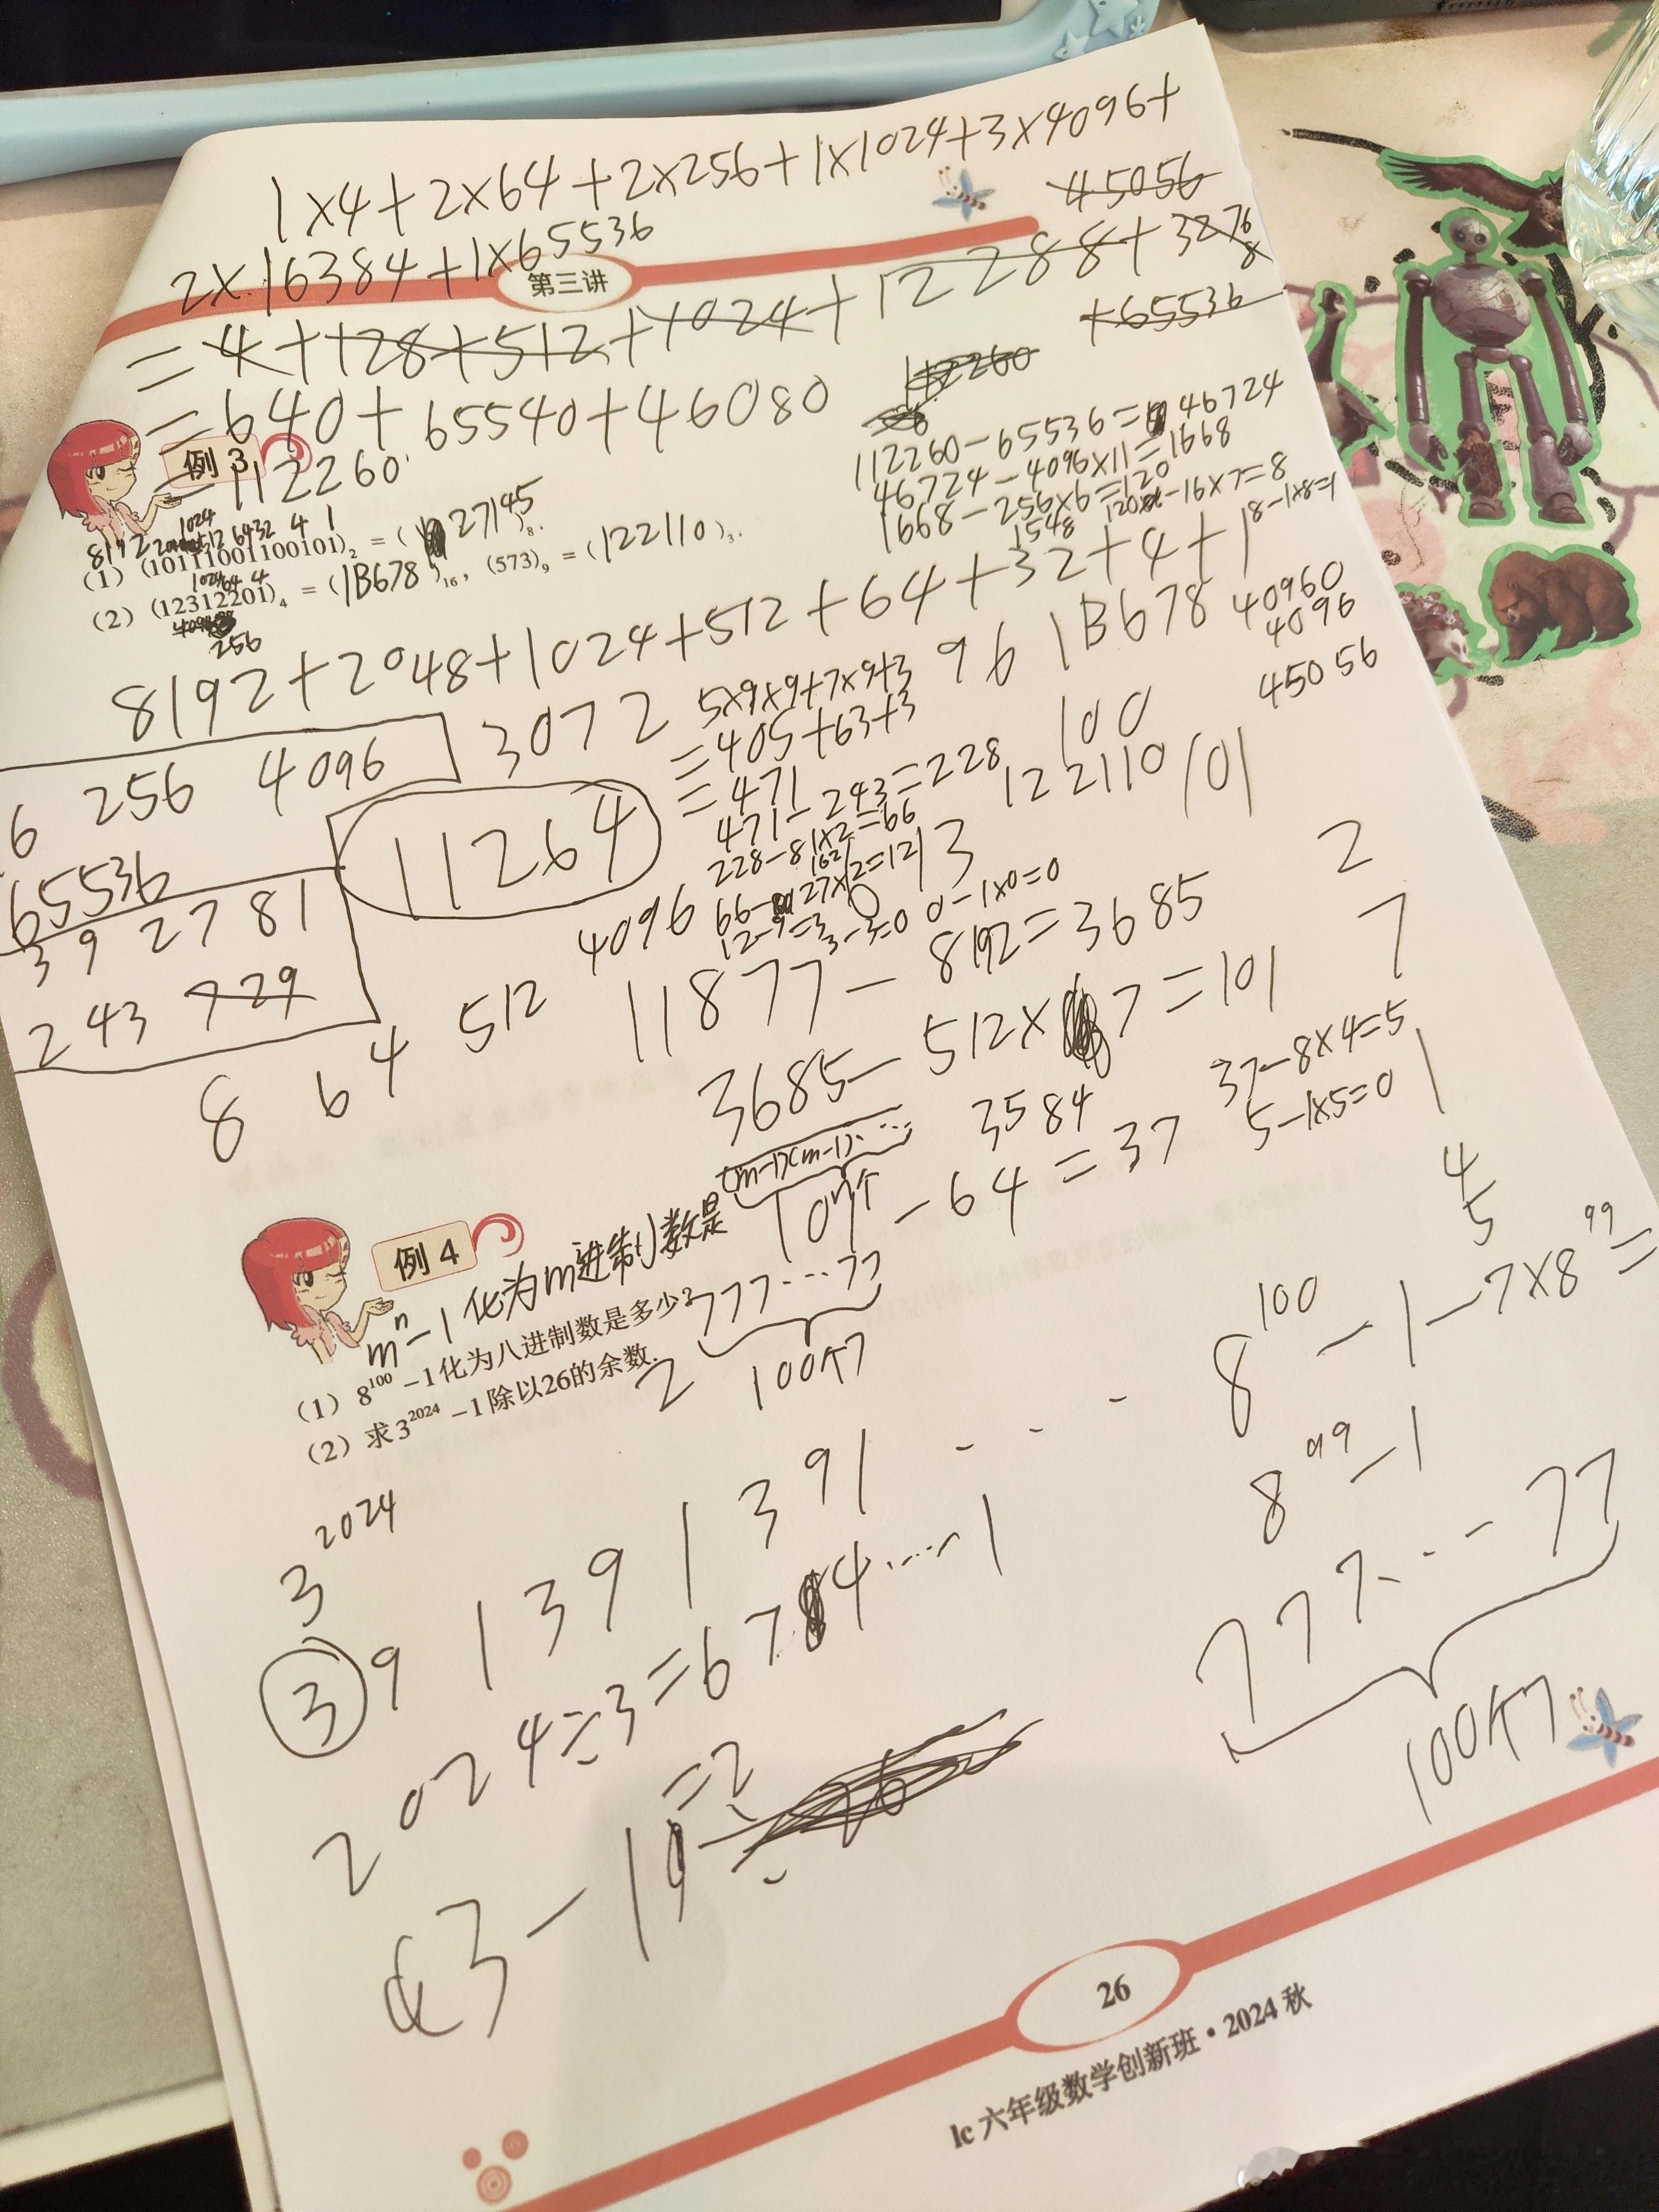 1×4+2×64+2×256+1×1024+3×4096+
2×16384+1×65536
45056
第三讲
=4+128+512+1024+12288+32768
+65536
=640+65540+46080
112260
=112260
例3
112260-65536=46724
46724-4096×11=1668
1668-256×6=120
1548
120-16×7=8
8-1×8=
8192 1024 512 64 32 4 1
(1) (10111001100101)₂ = (27145)₈.
(2) (12312201)₄ = (1B678)₁₆, (573)₉ = (122110)₃.
1024 64 4
256
8192+2048+1024+512+64+32+4+1
3072
96
1B678
40960
4096
45056
6 256 4096
65536
11264
5×9×9+7×9+3
=405+63+3
=471
471-243=228
228-81×2=66
162
66-27×2=12
12-9=3
3-3=0
0-1×0=0
100
122110
101
3 9 27 81
243 729
8 64 512 4096
11877-8192=3685
3685-512×7=101
3584
101-64=37
37-8×4=5
5-1×5=0
2
7
1
4
5
例4
mⁿ-1化为m进制数是(m-1)(m-1)…
n个
(1) 8¹⁰⁰-1化为八进制数是多少?
777…77
100个7
(2) 求3²⁰²⁴-1除以26的余数.
2
8¹⁰⁰-1-7×8⁹⁹=
8⁹⁹-1
777…77
100个7
3²⁰²⁴
3
3 9 1 3 9 1 3 9 1 …
2024÷3=674……1
3-1=2
26
lc 六年级数学创新班·2024 秋